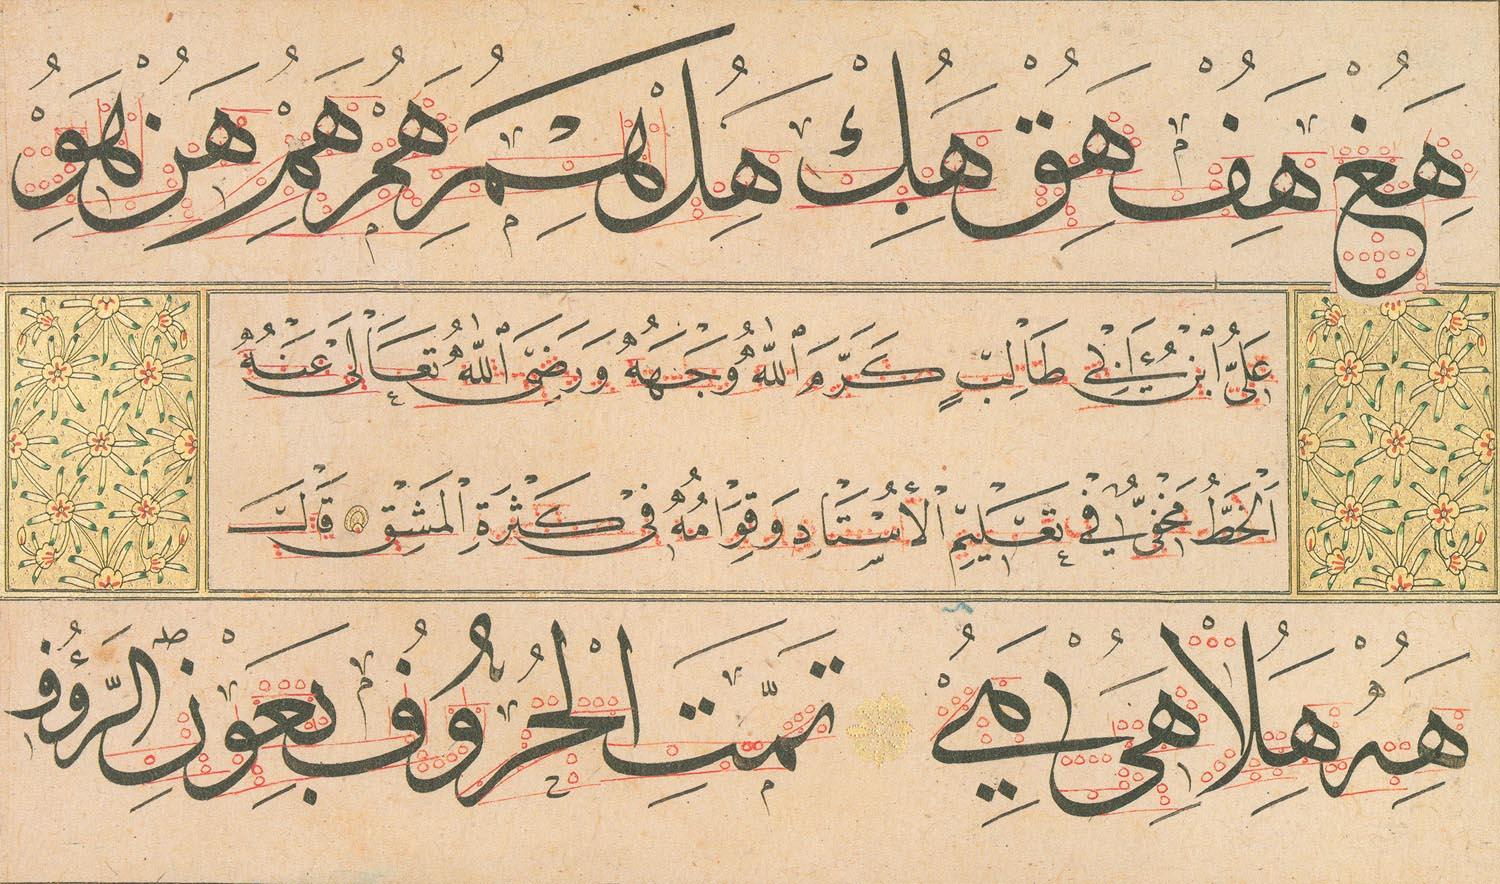 هغ هف هق هك هل هم هم هم هن هو
عَلِيُّ ابْنُ أَبِي طَالِبٍ كَرَّمَ اللهُ وَجْهَهُ وَرَضِيَ اللهُ تَعَالَى عَنْهُ
اَلْخَطُّ مَخْفِيٌّ فِي تَعْلِيمِ الْأُسْتَادِ وَقِوَامُهُ فِي كَثْرَةِ الْمَشْقِ قَالَ
هه هلا هى تمت الحروف بعون الرؤف